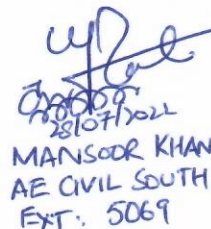 28/07/2022
MANSOOR KHAN
AE CIVIL SOUTH
EXT: 5069